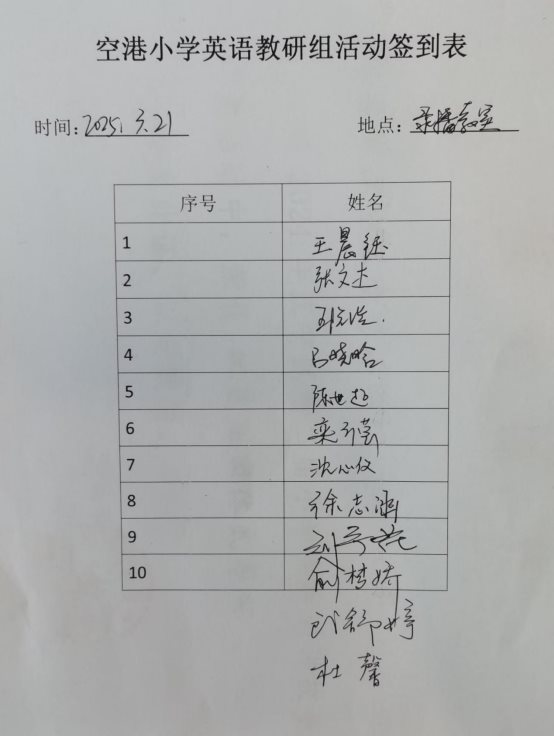 空港小学英语教研组活动签到表
时间：2025.3.21 地点：录播教室
序号 姓名
1 王晨钰
2 张文杰
3
4 吕晓晗
5 陈
6 栾
7 沈心仪
8 徐志
9
10 俞梦娇
舒婷
杜馨